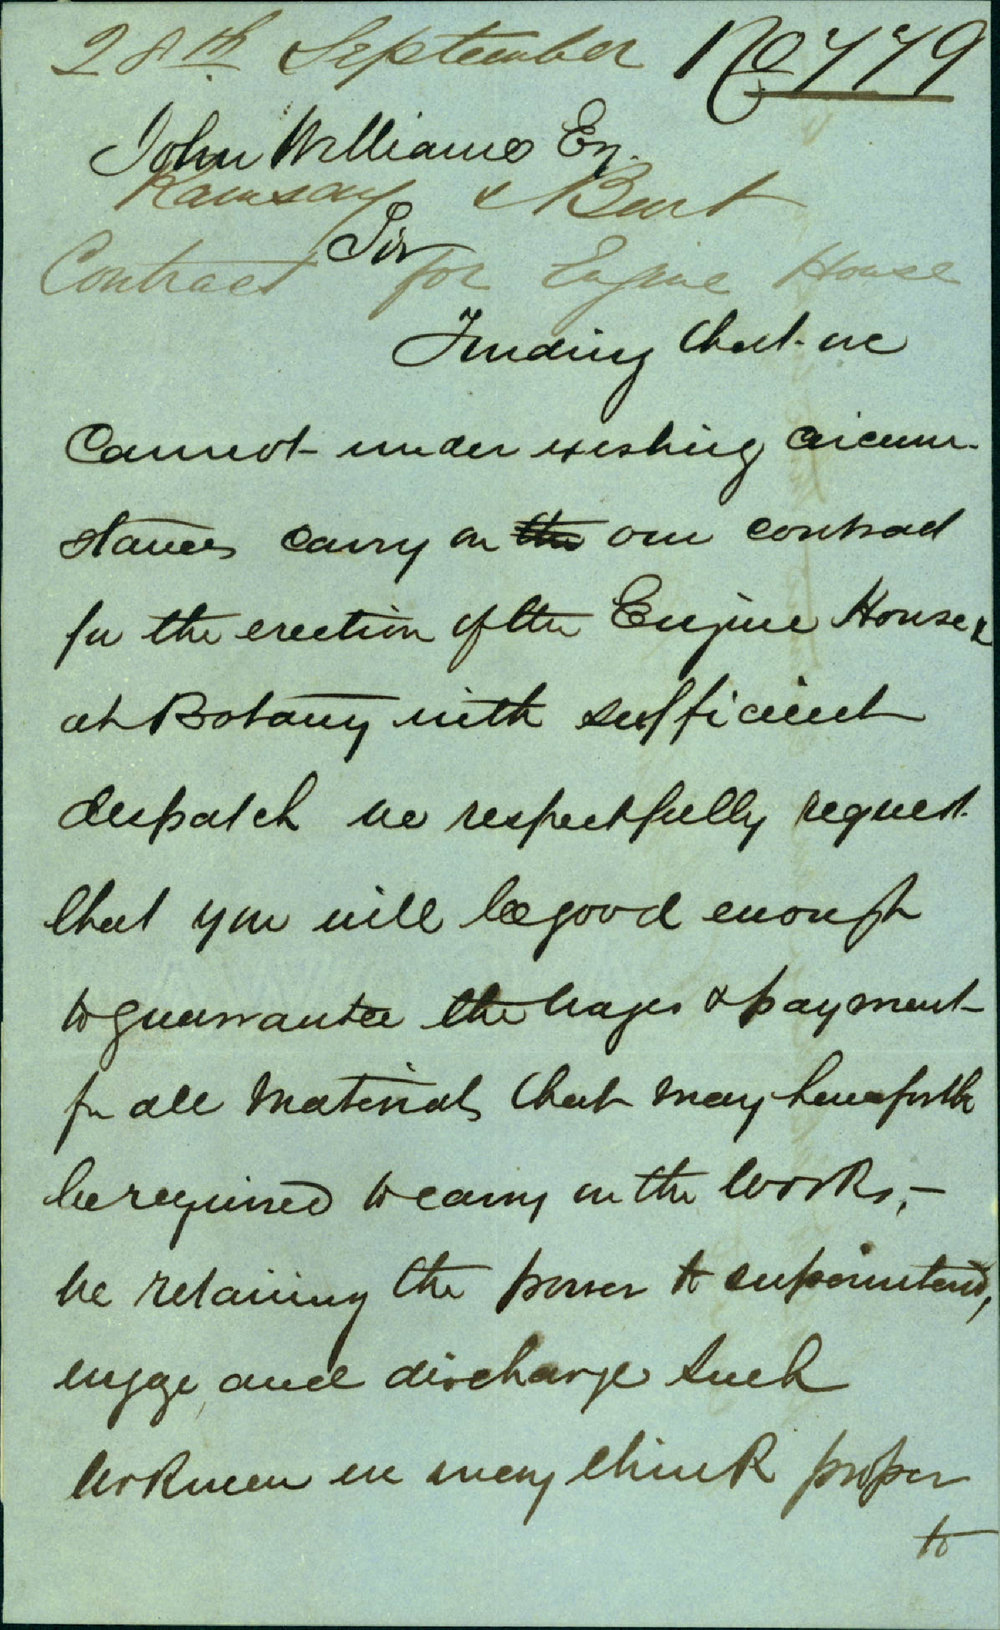 28th September No 779
John Williams Esq.
Ramsay & Burt
Sir
Contract for Engine House
Finding that we
Cannot under existing circum-
stances carry on the our contract
for the erection of the Engine House &
at Botany with sufficient
despatch we respectfully request
that you will be good enough
to guarrantee the Wages & payment
for all Materials that may henceforth
be required to carry on the Works, -
we retaining the power to superintend,
engage and discharge such
Workmen we may think proper
to